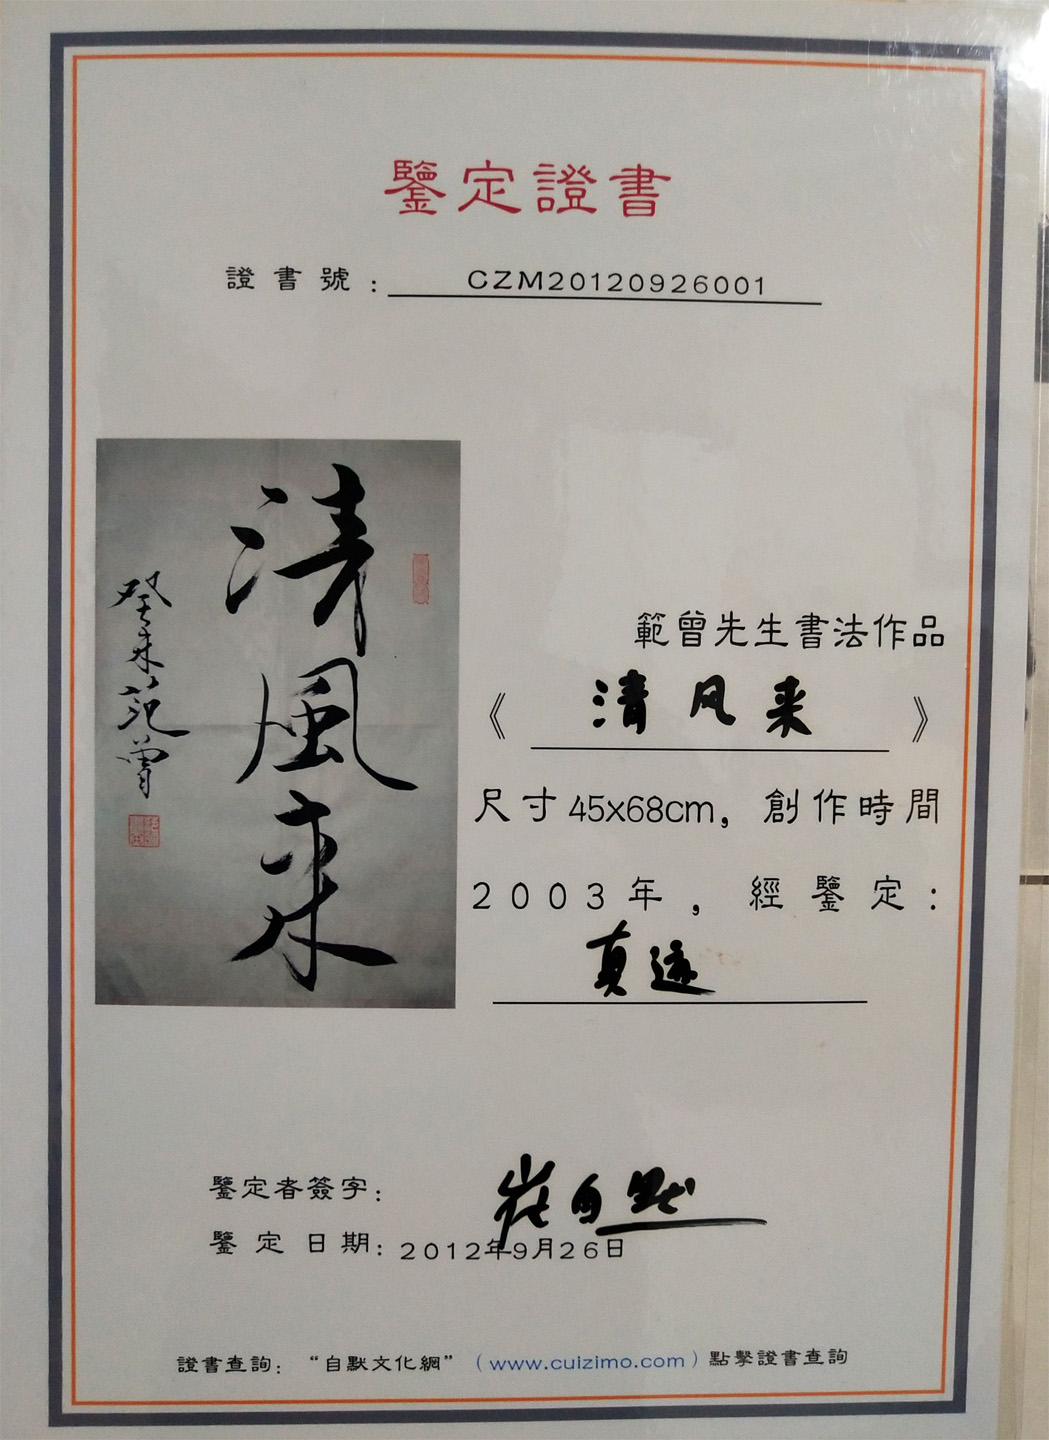 鑒定證書
證書號：CZM20120926001
清風来
癸未范曾
範曾先生書法作品
《清风来》
尺寸45x68cm，創作時間
2003年，經鑒定：
真迹
鑒定者簽字：崔自默
鑒定日期：2012年9月26日
證書查詢：“自默文化網”（www.cuizimo.com）點擊證書查詢